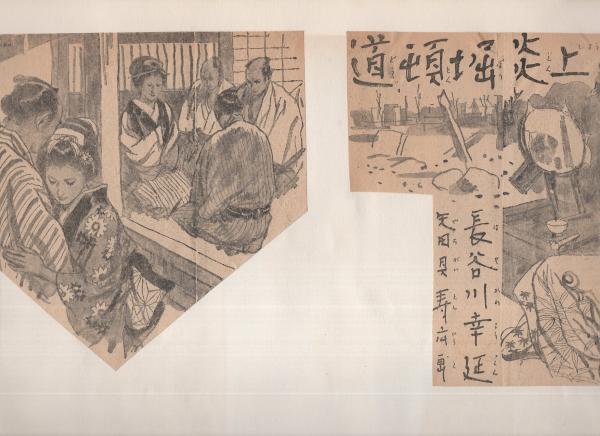 道頓堀炎上
長谷川幸延
矢田貝寿広画